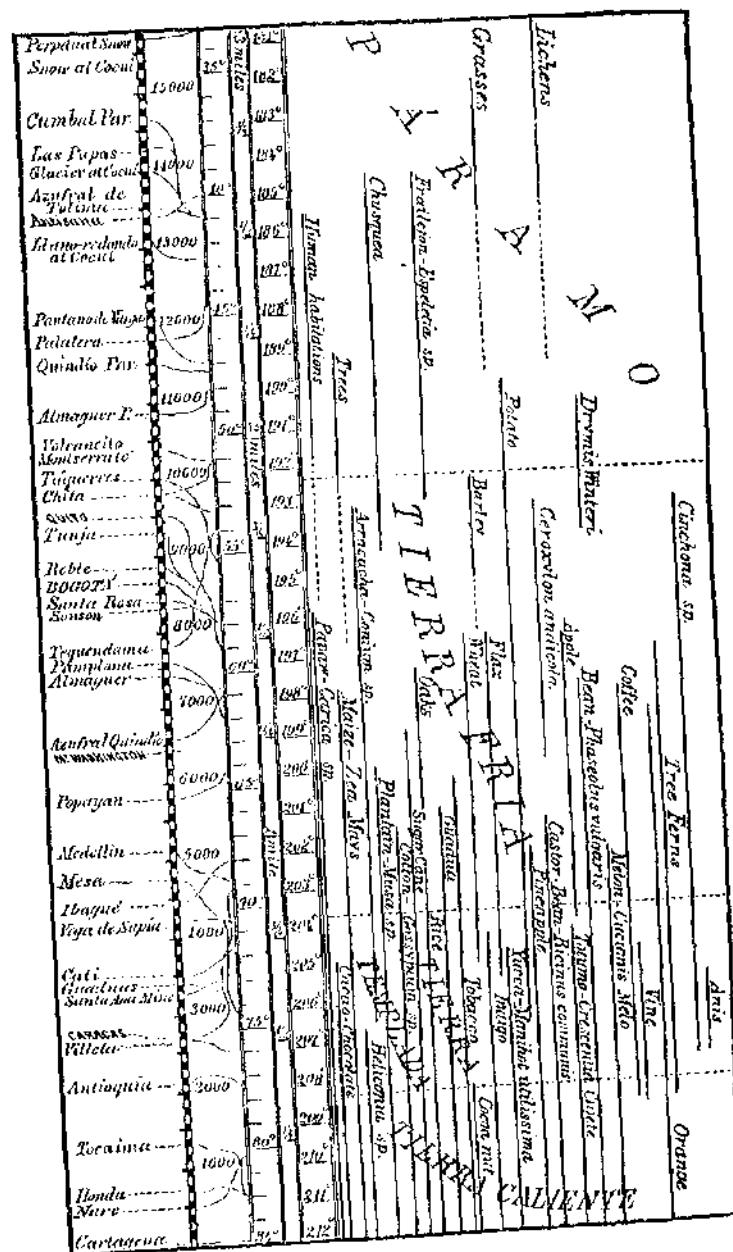 Perpetual Snow
Snow at Cocui
Cumbal Par.
Las Papas
Glacier at Cocui
Azufral de
Tolima
Antisana
Llano-redondo
at Cocui
Pantano de Vargas
Palatera
Quindio Par.
Almaguer P.
Volcancito
Montserrate
Tuquerres
Chita
QUITO
Tunja
Roble
BOGOTÁ
Santa Rosa
Sonson
Tequendama
Pamplona
Almaguer
Azufral Quindio
Mt WASHINGTON
Popayan
Medellin
Mesa
Ibagué
Vega de Supia
Cali
Guaduas
Santa Ana Mine
CARACAS
Villeta
Antioquia
Tocaima
Honda
Nare
Cartagena
15000
14000
13000
12000
11000
10000
9000
8000
7000
6000
5000
4000
3000
2000
1000
35°
40°
45°
50°
55°
60°
65°
70°
75°
80°
81°
3 miles
2 miles
1 mile
181°
182°
183°
184°
185°
186°
187°
188°
189°
190°
191°
192°
193
194°
195°
196°
197°
198°
199°
200°
201°
202°
203°
204°
205°
206°
207°
208
209°
210°
211
212°
PÁRAMO
TIERRA FRIA
TIERRA
TEMPLADA
TIERRA CALIENTE
Lichens
Grasses
Frailejon-Espeletia sp.
Chusquea
Human habitations
Trees
Potato
Drymis Winteri
Barley
Cinchona sp.
Ceroxylon andicola.
Arracacha-Conium sp.
Apple
Flax
Wheat
Papar-Carica sp.
Oaks
Maize-Zea Mays
Bean-Phaseolus vulgaris
Coffee
Tree Ferns
Plantain-Musa sp.
Sugar Cane
Cotton-Gossypium sp.
Guadua
Castor-Bean-Ricinus communis
Pineapple
Melon-Cucumis Melo
Rice
Totumo-Crescentia Cujete
Yucca-Manihot utilissima
Indigo
Tobacco
Vine
Anis
Cacao-Chocolate
Heliconia sp.
Cocoa nut
Orange